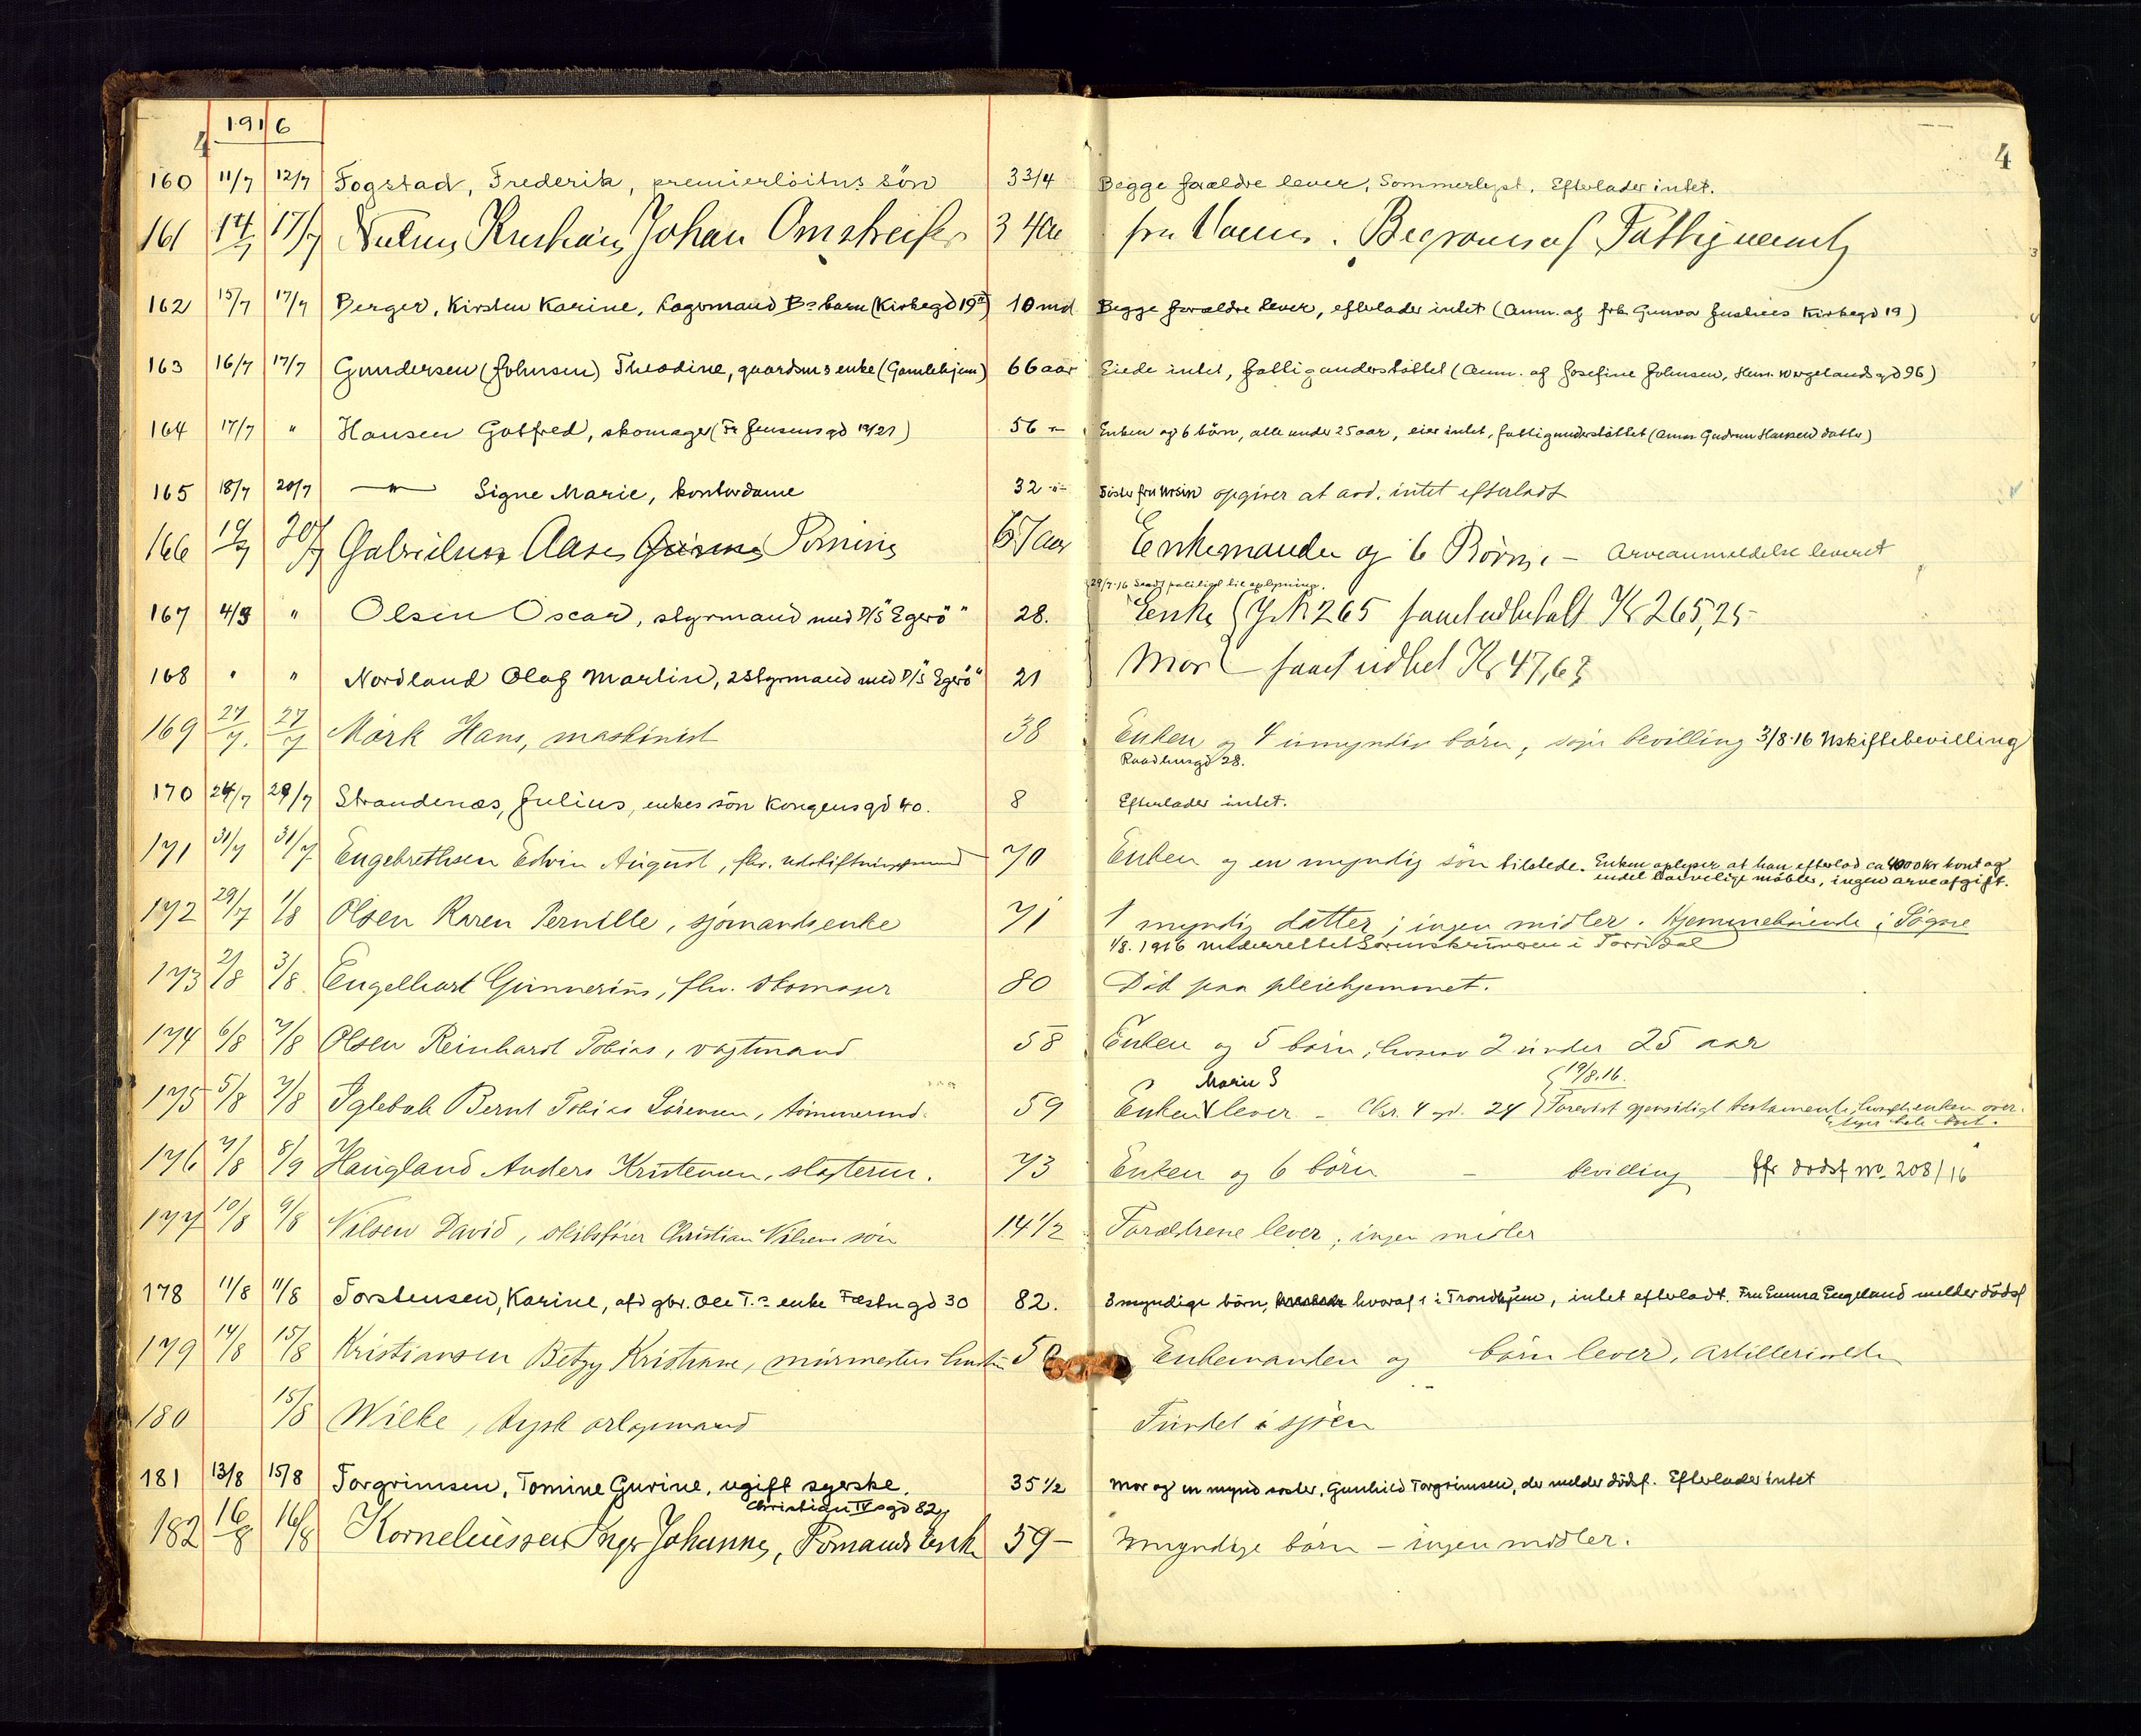 4 1916 4
160 11/7 12/7 Fogstad, Frederik, premierlöitns sön 3 3/4 Begge forældre lever, Sommerlyst. Efterlader intet.
161 14/7 17/7 Johan Omstreifer 3 fra Begraves af Fattigvæsenet
162 15/7 17/7 Berger, Kirsten Karine, Lagermand Bs barn (Kirkegd 19) 10 md Begge forældre lever, efterlader intet (Anm. af frk Gunvor Kirkegd 19)
163 16/7 17/7 Gundersen (Johnsen) Theodine, gaardms enke (Gamlehjem) 66 aar Eiede intet, fattigunderstöttet (Anm. af Josefine Johnsen, Hen. Wergelandsgd 96)
164 17/7 " Hansen Gotfred, skomager (Fr Jensensgd 19/21) 56 " Enken og 6 börn, alle under 25 aar, eier intet, fattigunderstöttet (Anm Gudrun Hansen datter)
165 18/7 20/7 — " — Signe Marie, kontordame 32 " Söster fru Ursin opgiver at avd. intet efterladt
166 19/7 20/7 Gabrielsen Aase Tomine 67 aar Enkemanden og 6 Börn. – Arveanmeldelse leveret
29/7-16 Sendt politiet til oplysning.
167 4/3 " Olsen Oscar, styrmand med D/S "Egerö" 28. Enke J. N. 265 samt udbetalt Kr 265,25
168 " " Nordland Olaf Martin, 2 styrmand med D/S "Egerö" 21 Mor samt udbet Kr 47,63
169 27/7. 27/7 Mörk Hans, maskinist 38 Enken og 4 umyndige börn, bevilling 3/8-16 Uskiftebevilling
Raadhusgd 28.
170 24/7 29/7 Strandenæs, Julius, enkes sön Kongensgd 40. 8 Efterlader intet.
171 31/7 31/7 Engebrethsen Edvin August, fhv. udskiftningsformand 70 Enken og en myndig sön tilstede. Enken oplyser at han efterlod ca 4000 kr kont og
endel tarvelige möbler, ingen arveafgift.
172 29/7 1/8 Olsen Karen Pernille, sjömandsenke 71 1 myndig datter; ingen midler. Hjemmehörende i Sögne
1/8. 1916 underrettet Sorenskriveren i Torridal
173 2/8 3/8 Engelhart Gunnerius, fhv. skomager 80 Död paa pleiehjemmet.
174 6/8 7/8 Olsen Reinhart Tobias, vagtmand 58 Enken og 5 börn, hvorav 2 under 25 aar
Marie S 19/8.16.
175 5/8 7/8 Iglebæk Bernt Tobias Sörensen, tömmermd. 59 Enken lever – Chr. 4 gd. 24 Forevist gjensidigt testamente, hvorefter enken over-
tager hele boet.
176 7/8 8/9 Haugland Anders Kristensen, slagterm. 73 Enken og 6 börn – bevilling jfr dödsf no. 208/16
177 10/8 9/8 Nilsen David, skibsförer Christian Nilsens sön 14 1/2 Forældrene lever, ingen midler
178 11/8 11/8 Torstensen, Karine, afd gbr. Ole T.s enke Fæstngd 30 82. 3 myndige börn, hvoraf 1 i Trondhjem, intet efterladt. Fru Emma Engeland melder dödsf
179 14/8 15/8 Kristiansen Betzy Kristiane, murmesters hustru 5 Enkemanden og börn lever,
180 15/8 Wilke, tysk orlogsmand Fundet i sjöen
181 13/8 15/8 Torgrimsen, Tomine Gurine, ugift syerske. 35 1/2 Mor og en mynd söster, Gunhild Torgrimsen, der melder dödsf. Efterlader intet
Christian IVsgd 82
182 16/8 16/8 Korneliussen Inger Johanne, Enke 59 – myndige börn – ingen midler.